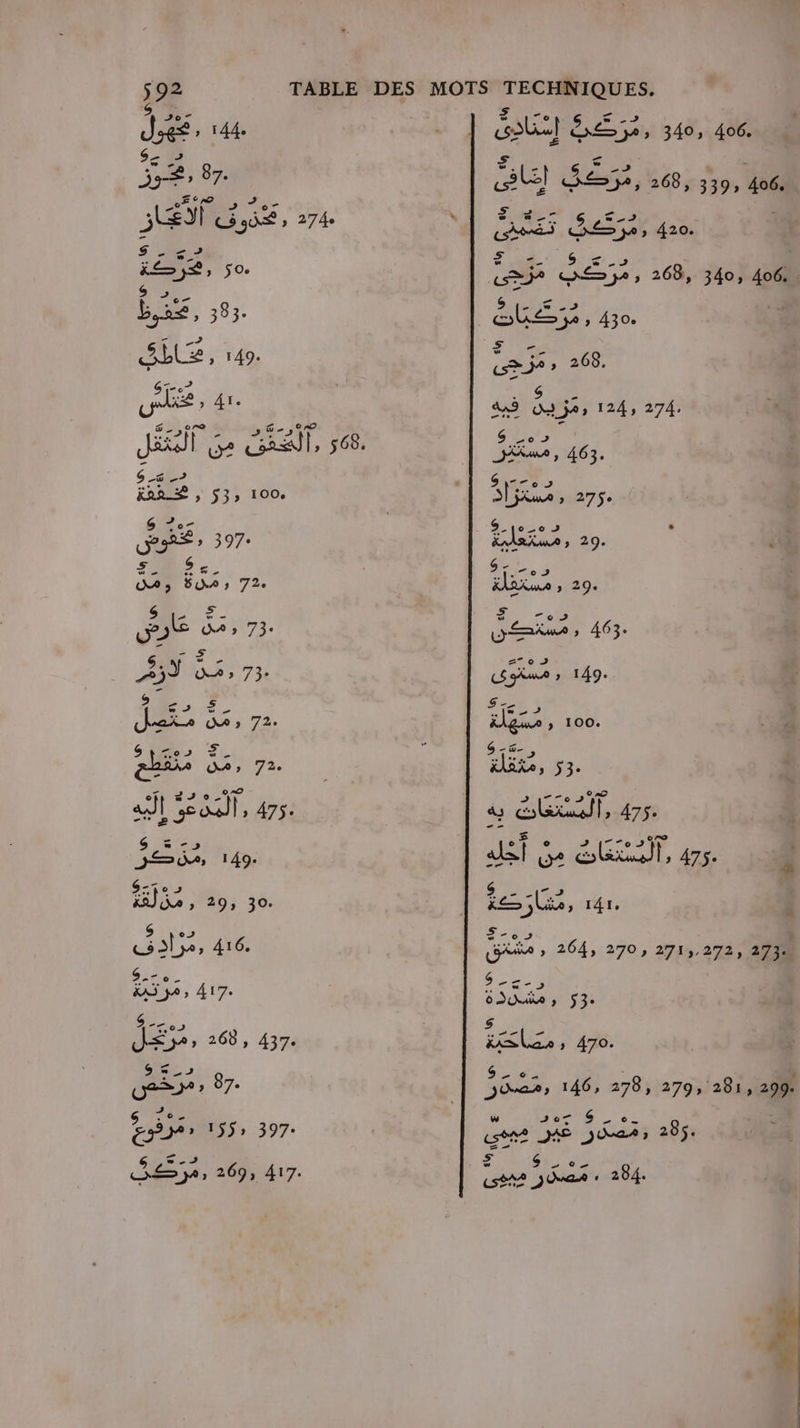 592 TABLE DES MOTS TECHNIQUES.
مَجْهُولٌ, 144.
مُجَوَّزٌ, 87.
مَحْذُوفُ الْأَعْجَازِ, 274.
مُحَرَّكَةٌ, 50.
مَحْفُوظٌ, 383.
مُخَاطَبٌ, 149.
مُخْتَلَسٌ, 41.
اَلْمُخَفَّفُ مِنَ الْمُثَقَّلِ, 568.
مُخَفَّفَةٌ, 53, 100.
مَخْفُوضٌ, 397.
مَدٌّ, مَدَّةٌ, 72.
مَدٌّ عَارِضٌ, 73.
مَدٌّ لَازِمٌ, 73.
مَدٌّ مُتَّصِلٌ, 72.
مَدٌّ مُنْقَطِعٌ, 72.
اَلْمَدْعُوُّ إِلَيْهِ, 475.
مُذَكَّرٌ, 149.
مُذْلَقَةٌ, 29, 30.
مُرَادِفٌ, 416.
مَرْتَبَةٌ, 417.
مُرْتَجَلٌ, 268, 437.
مُرَخَّصٌ, 87.
مَرْفُوعٌ, 155, 397.
مُرَكَّبٌ, 269, 417.
مُرَكَّبٌ إِسْنَادِىٌّ, 340, 406.
مُرَكَّبٌ إِضَافِىٌّ, 268, 339, 406.
مُرَكَّبٌ تَضَمُّنِىٌّ, 420.
مُرَكَّبٌ مَزْجِىٌّ, 268, 340, 406.
مُرَكَّبَاتٌ, 430.
مَزْجِىٌّ, 268.
مَزِيدٌ فِيهِ, 124, 274.
مُسْتَتِرٌ, 463.
مُسْتَزَادٌ, 275.
مُسْتَعْلِيَةٌ, 29.
مُسْتَفِلَةٌ, 29.
مُسْتَكِنٌّ, 463.
مُسْتَوِى, 149.
مُسَهَّلَةٌ, 100.
مُثَقَّلَةٌ, 53.
اَلْمُسْتَغَاثُ بِهِ, 475.
اَلْمُسْتَغَاثُ مِنْ أَجْلِهِ, 475.
مُشَارَكَةٌ, 141.
مُشْتَقٌّ, 264, 270, 271, 272, 273.
مُشَدَّدَةٌ, 53.
مُصَاحَبَةٌ, 470.
مَصْدَرٌ, 146, 278, 279, 281, 299.
مَصْدَرٌ غَيْرُ مِيمِىٍّ, 285.
مَصْدَرٌ مِيمِىٌّ, 284.